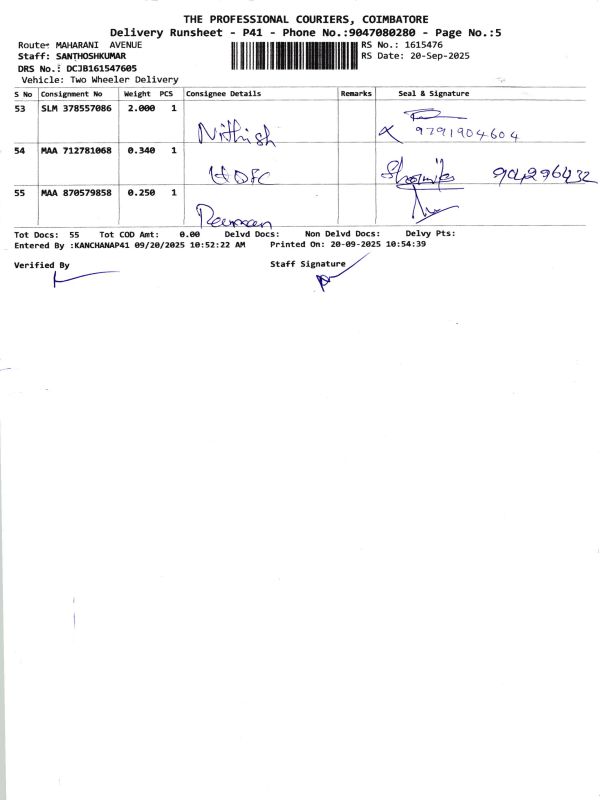 THE PROFESSIONAL COURIERS, COIMBATORE
Delivery Runsheet - P41 - Phone No.:9047080280 - Page No.:5
Route: MAHARANI AVENUE
RS No.: 1615476
Staff: SANTHOSHKUMAR
RS Date: 20-Sep-2025
DRS No.: DCJB161547605
Vehicle: Two Wheeler Delivery
S No Consignment No Weight PCS Consignee Details Remarks Seal & Signature
53 SLM 378557086 2.000 1
Nithish 9791904604
54 MAA 712781068 0.340 1
HDFC
55 MAA 870579858 0.250 1
Tot Docs: 55 Tot COD Amt: 0.00 Delvd Docs: Non Delvd Docs: Delvy Pts:
Entered By :KANCHANAP41 09/20/2025 10:52:22 AM Printed On: 20-09-2025 10:54:39
Verified By Staff Signature